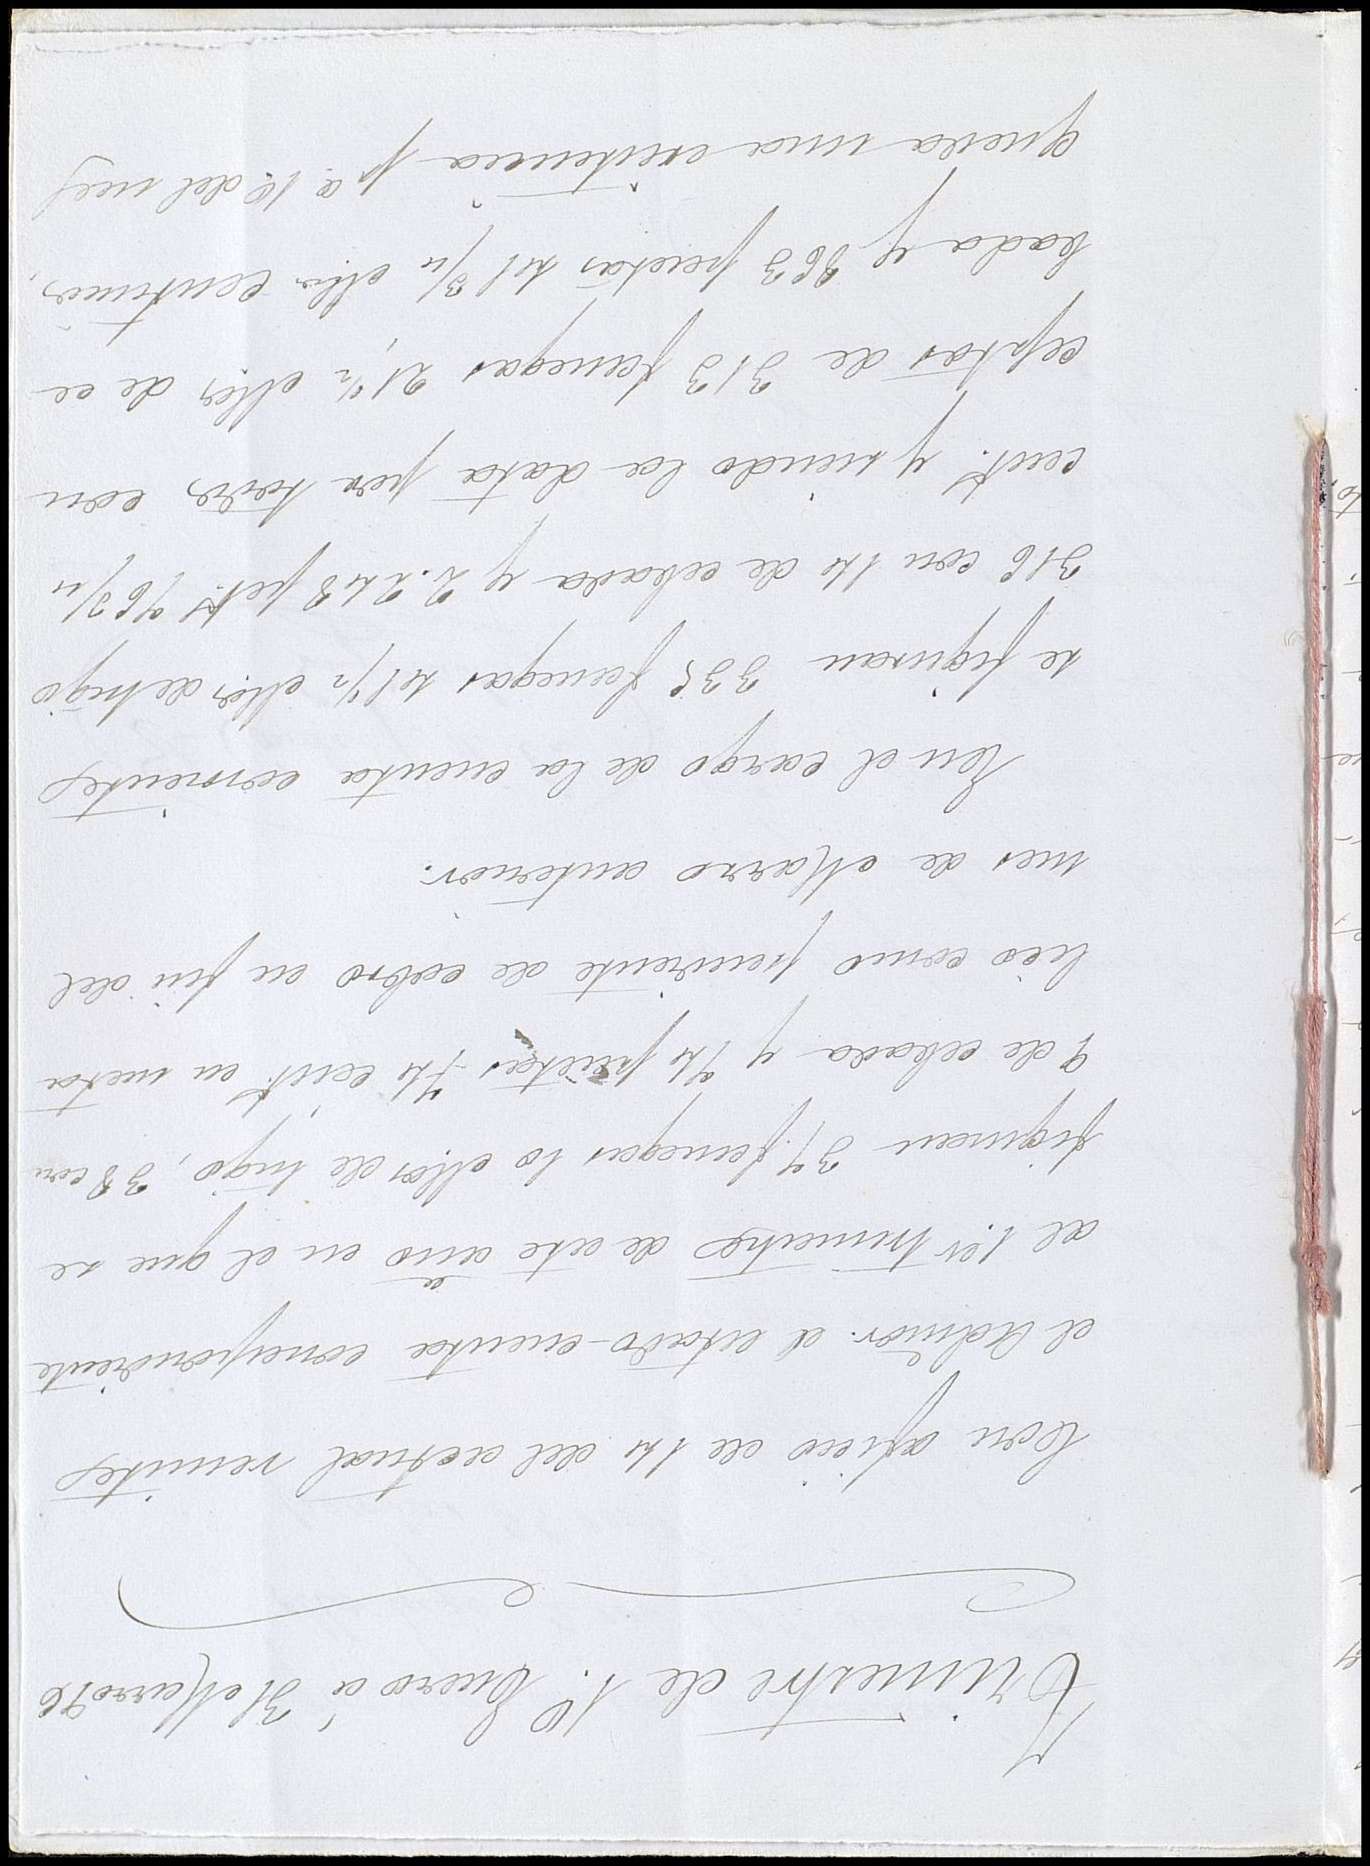 Trimestre de 1º. Enero á 31 Marzo 76
Con oficio de 14 del actual remite
el Admor. el estado-cuenta correspondiente
al 1.er trimestre de este año en el que se
figuran 37 fanegas 10 Mes de trigo, 38 con
9 de cebada y pesetas cent. en meta
lico como pendiente de cobro en fin del
mes de Marzo anterior.
En el cargo de la cuenta corriente
se figuran 335 fanegas 1/2 Mes de trigo
316 con 14 de cebada y 2.248 pet.
cent. y siendo la data por todos con
ceptos de 313 fanegas 21 1/2 Mes de ce
bada y 863 pesetas centimos,
queda una existencia pª 1º del mes